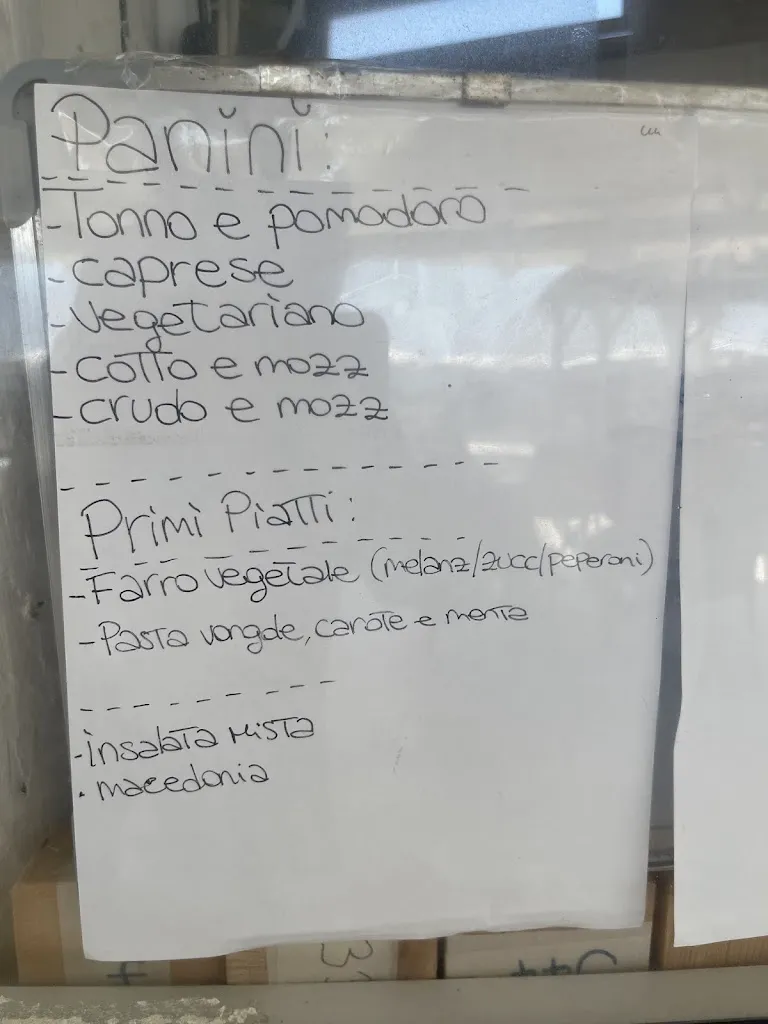 Panini:
- Tonno e pomodoro
- caprese
- vegetariano
- cotto e mozz
- crudo e mozz
Primi Piatti:
- Farro vegetale (melanz/zucc/peperoni)
- Pasta vongole, carote e menta
- insalata Mista
. macedonia